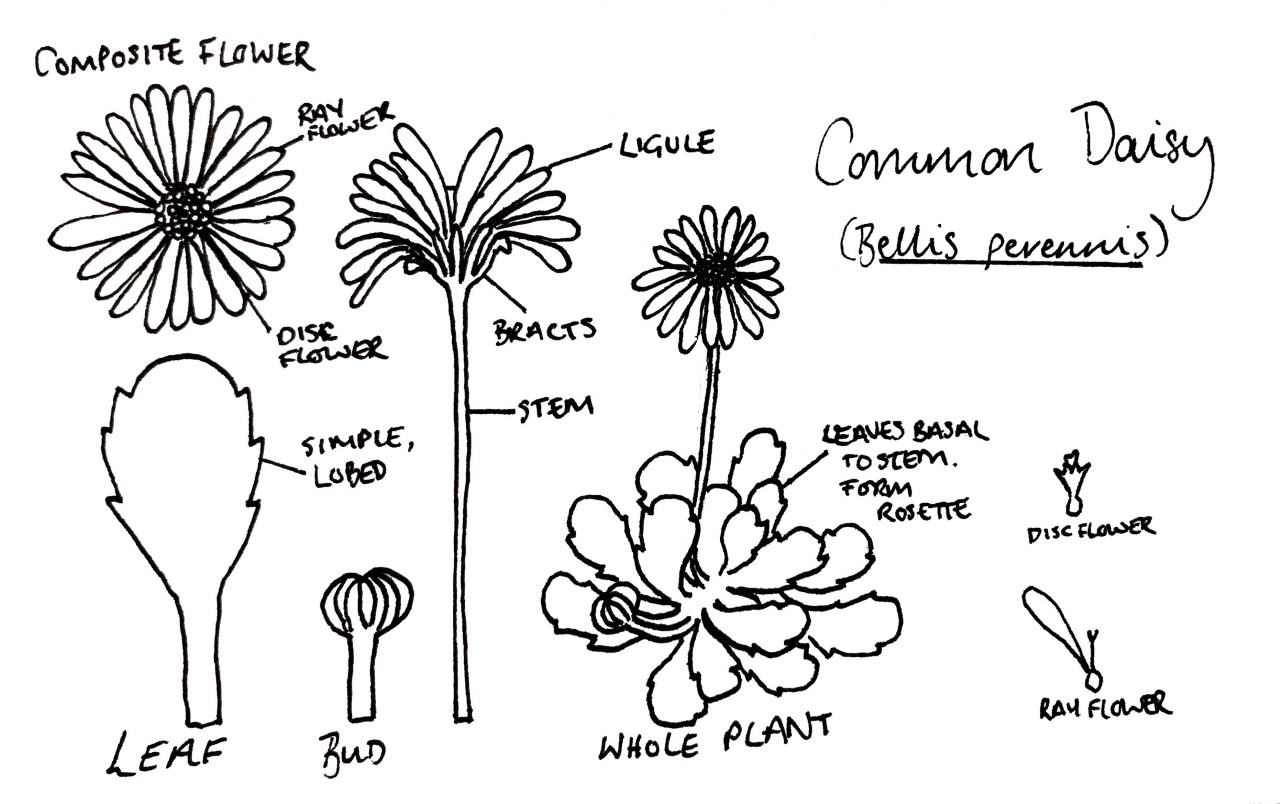 COMPOSITE FLOWER
RAY
FLOWER
LIGULE
Common Daisy
(Bellis perennis)
BRACTS
DISC
FLOWER
STEM
SIMPLE,
LOBED
LEAVES BASAL
TO STEM.
FORM
ROSETTE
DISC FLOWER
RAY FLOWER
LEAF
BUD
WHOLE PLANT